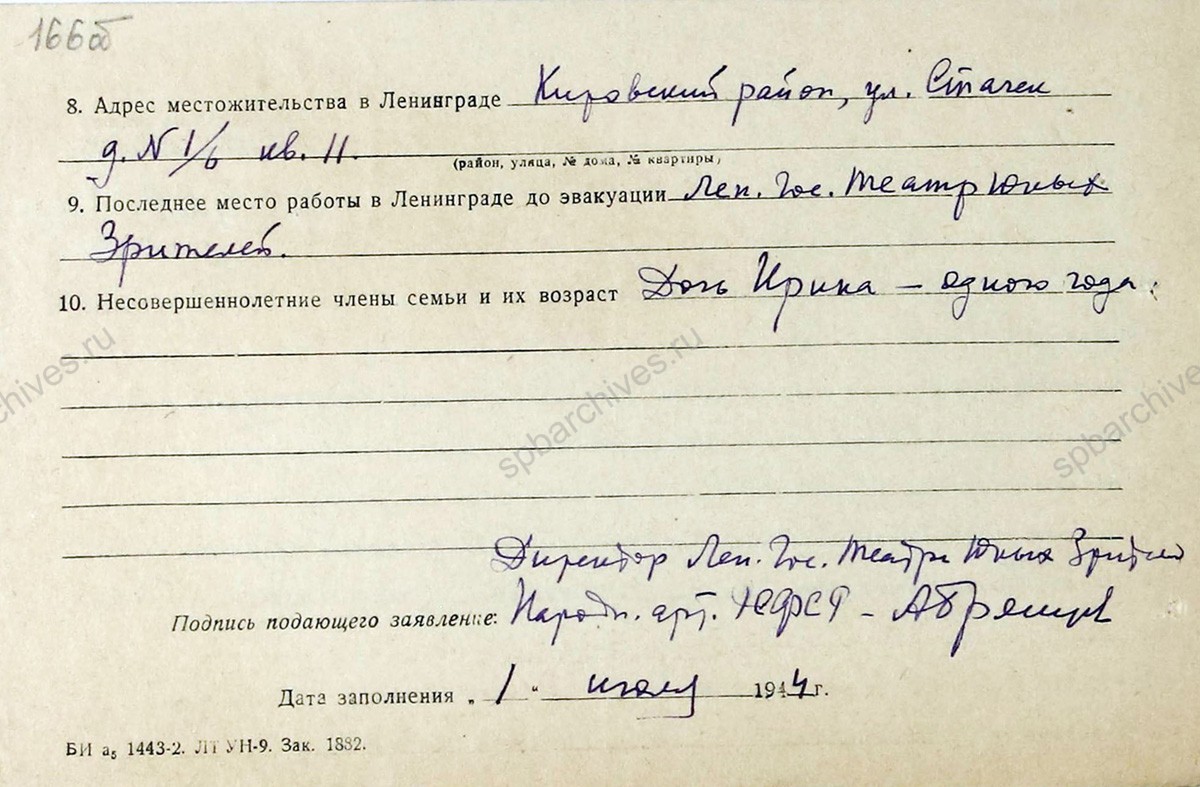 166об
8. Адрес местожительства в Ленинграде Кировский район, ул. Стачек
д. N 1/6 кв. 11.
(район, улица, № дома, № квартиры)
9. Последнее место работы в Ленинграде до эвакуации Лен. Гос. Театр Юных
Зрителей.
10. Несовершеннолетние члены семьи и их возраст Дочь Ирина — одного года.
Директор Лен. Гос. Театра Юных Зрителей
Подпись подающего заявление: Народн. арт. РСФСР - АБрянцев
Дата заполнения „ 1 “ июля 1944 г.
БИ а5 1443-2. ЛТ УН-9. Зак. 1882.
chives.ru
spbarchives.ru
spbarchive